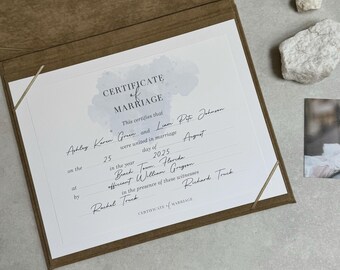 CERTIFICATE
of
MARRIAGE
This certifies that
Ashley Karen Green and Liam Pete Johnson
were united in marriage
on the 25 day of August
in the year 2025
at Beach Town, Florida
by officiant William Grayson
in the presence of these witnesses
Rachel Trunk Richard Trunk
CERTIFICATE of MARRIAGE